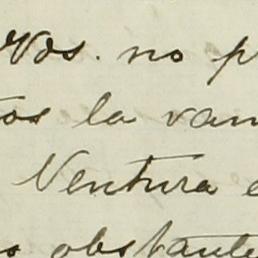 Vds. no p
tos la van
Ventura e
obstante